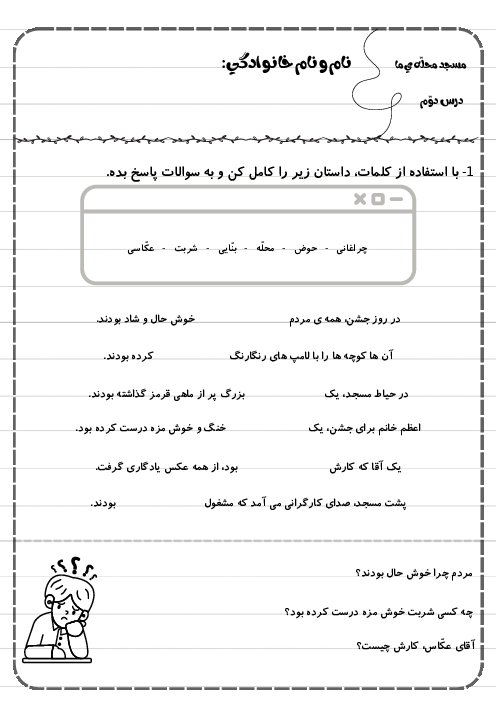 مسجد محلّه‌ي ما
نام و نام خانوادگي:
درس دوّم
1- با استفاده از کلمات، داستان زیر را کامل کن و به سوالات پاسخ بده.
چراغانی - حوض - محلّه - بنّایی - شربت - عکّاسی
در روز جشن، همه ی مردم خوش حال و شاد بودند.
آن ها کوچه ها را با لامپ های رنگارنگ کرده بودند.
در حیاط مسجد، یک بزرگ پر از ماهی قرمز گذاشته بودند.
اعظم خانم برای جشن، یک خنگ و خوش مزه درست کرده بود.
یک آقا که کارش بود، از همه عکس یادگاری گرفت.
پشت مسجد، صدای کارگرانی می آمد که مشغول بودند.
؟ ؟ ؟ ؟
مردم چرا خوش حال بودند؟
چه کسی شربت خوش مزه درست کرده بود؟
آقای عکّاس، کارش چیست؟